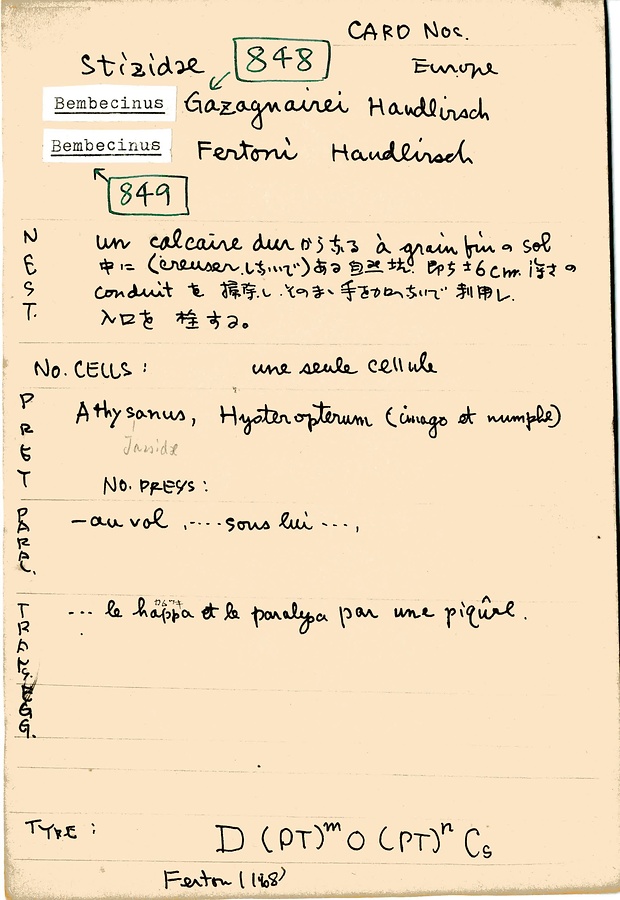 CARD Nos.
Stizidae 848 Europe
Bembecinus Gazagnairei Handlirsch
Bembecinus Fertoni Handlirsch
849
NEST.
un calcaire dur から成る à grain fin の sol
中に (creuser しないで) ある自然坑 即ち ±6cm 深さの
conduit を 掃除し そのまゝ手を加えないで 利用し
入口を 栓する。
No. CELLS : une seule cellule
PREY
Athysanus, Hysteropterum (imago et numphe)
Jassidae
No. PREYS :
PARAL.
— au vol , .... sous lui ... ,
TRANS. EGG.
... le happa et le paralysa par une piqûre.
TYPE : D (PT)m O (PT)n Cs
Ferton (1908)